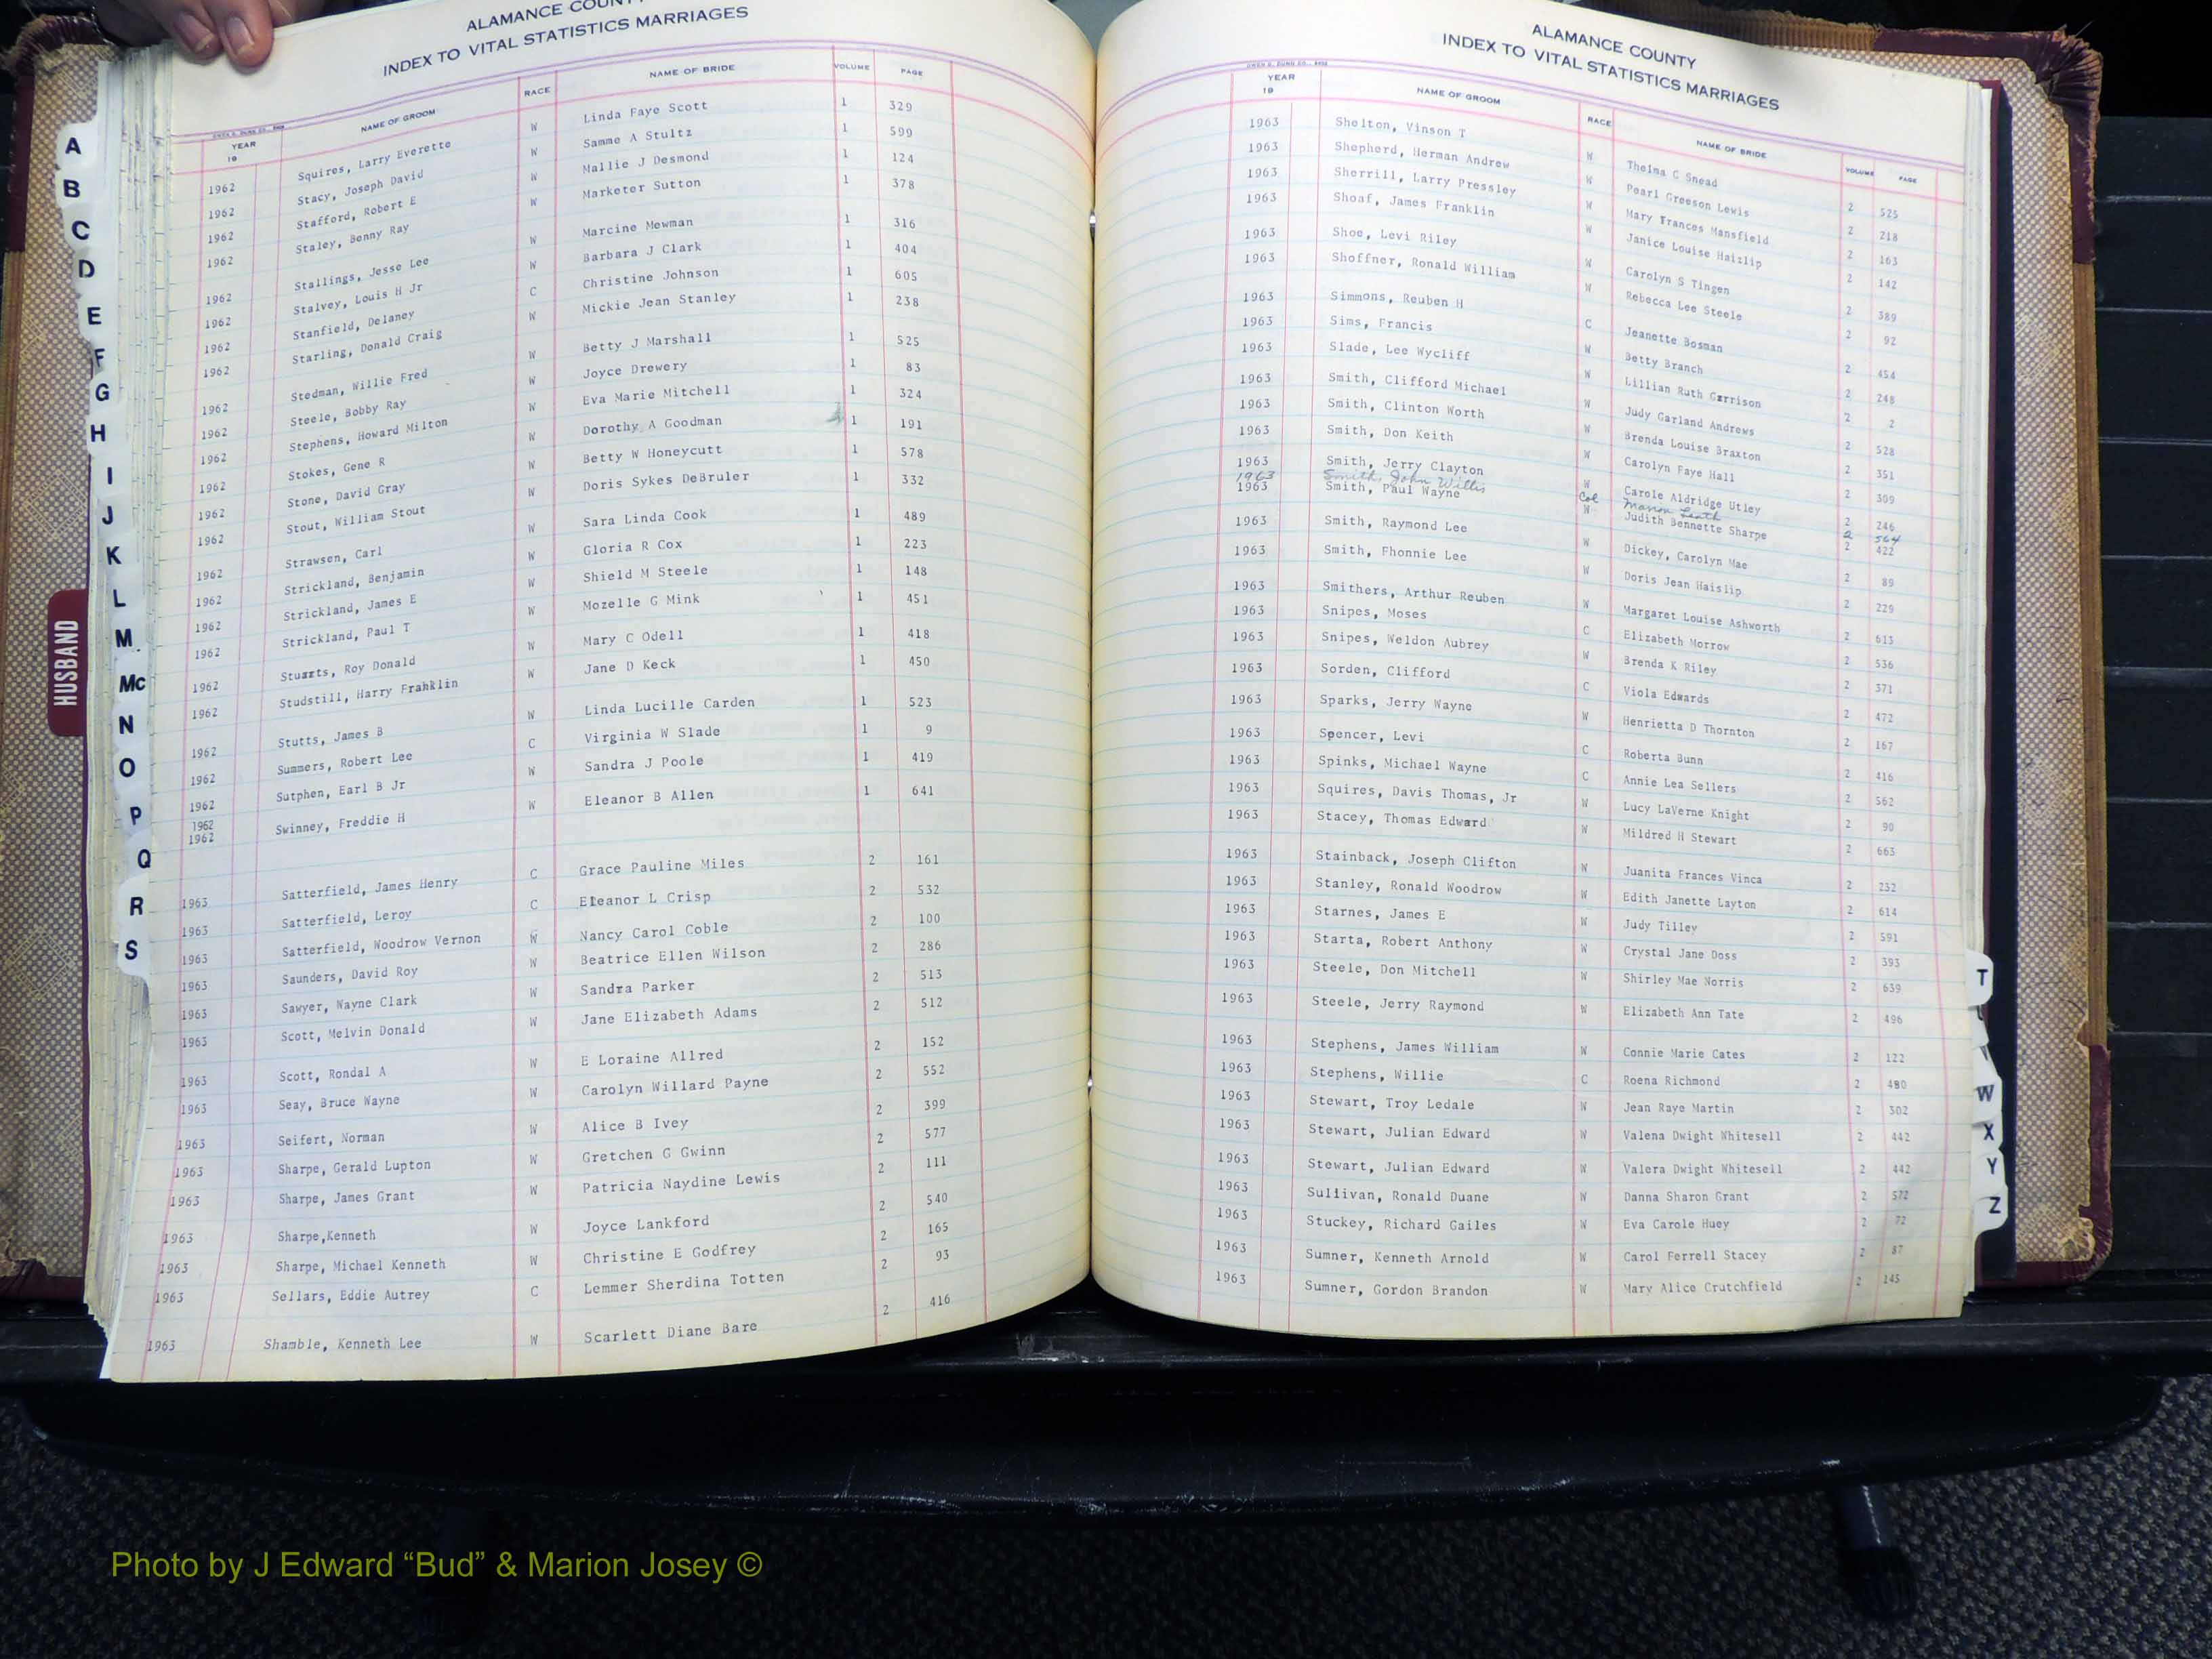 ALAMANCE COUNTY
INDEX TO VITAL STATISTICS MARRIAGES
YEAR 19 NAME OF GROOM RACE NAME OF BRIDE VOLUME PAGE
1962 Squires, Larry Everette W Linda Faye Scott 1 329
1962 Stacy, Joseph David W Samme A Stultz 1 599
1962 Stafford, Robert E W Mallie J Desmond 1 124
1962 Staley, Benny Ray W Marketer Sutton 1 378
1962 Stallings, Jesse Lee W Marcine Newman 1 316
1962 Stalvey, Louis H Jr W Barbara J Clark 1 404
1962 Stanfield, Delaney C Christine Johnson 1 605
1962 Starling, Donald Craig W Mickie Jean Stanley 1 238
1962 Stedman, Willie Fred W Betty J Marshall 1 525
1962 Steele, Bobby Ray W Joyce Drewery 1 83
1962 Stephens, Howard Milton W Eva Marie Mitchell 1 324
1962 Stokes, Gene R W Dorothy A Goodman 1 191
1962 Stone, David Gray W Betty W Honeycutt 1 578
1962 Stout, William Stout W Doris Sykes DeBruler 1 332
1962 Strawsen, Carl W Sara Linda Cook 1 489
1962 Strickland, Benjamin W Gloria R Cox 1 223
1962 Strickland, James E W Shield M Steele 1 148
1962 Strickland, Paul T W Mozelle G Mink 1 451
1962 Stuarts, Roy Donald W Mary C Odell 1 418
1962 Studstill, Harry Frahklin W Jane D Keck 1 450
1962 Stutts, James B W Linda Lucille Carden 1 523
1962 Summers, Robert Lee C Virginia W Slade 1 9
1962 Sutphen, Earl B Jr W Sandra J Poole 1 419
1962
1962 Swinney, Freddie H W Eleanor B Allen 1 641
1963 Satterfield, James Henry C Grace Pauline Miles 2 161
1963 Satterfield, Leroy C Eleanor L Crisp 2 532
1963 Satterfield, Woodrow Vernon W Nancy Carol Coble 2 100
1963 Saunders, David Roy W Beatrice Ellen Wilson 2 286
1963 Sawyer, Wayne Clark W Sandra Parker 2 513
1963 Scott, Melvin Donald W Jane Elizabeth Adams 2 512
1963 Scott, Rondal A W E Loraine Allred 2 152
1963 Seay, Bruce Wayne W Carolyn Willard Payne 2 552
1963 Seifert, Norman W Alice B Ivey 2 399
1963 Sharpe, Gerald Lupton W Gretchen G Gwinn 2 577
1963 Sharpe, James Grant W Patricia Naydine Lewis 2 111
1963 Sharpe,Kenneth W Joyce Lankford 2 540
1963 Sharpe, Michael Kenneth W Christine E Godfrey 2 165
1963 Sellars, Eddie Autrey C Lemmer Sherdina Totten 2 93
1963 Shamble, Kenneth Lee W Scarlett Diane Bare 2 416
ALAMANCE COUNTY
INDEX TO VITAL STATISTICS MARRIAGES
YEAR 19 NAME OF GROOM RACE NAME OF BRIDE VOLUME PAGE
1963 Shelton, Vinson T W Thelma C Snead 2 525
1963 Shepherd, Herman Andrew W Pearl Greeson Lewis 2 218
1963 Sherrill, Larry Pressley W Mary Frances Mansfield 2 163
1963 Shoaf, James Franklin W Janice Louise Haizlip 2 142
1963 Shoe, Levi Riley W Carolyn S Tingen 2 389
1963 Shoffner, Ronald William W Rebecca Lee Steele 2 92
1963 Simmons, Reuben H C Jeanette Bosman 2 454
1963 Sims, Francis W Betty Branch 2 248
1963 Slade, Lee Wycliff W Lillian Ruth Garrison 2 2
1963 Smith, Clifford Michael W Judy Garland Andrews 2 528
1963 Smith, Clinton Worth W Brenda Louise Braxton 2 351
1963 Smith, Don Keith W Carolyn Faye Hall 2 309
1963 Smith, Jerry Clayton W Carole Aldridge Utley 2 246
1963 Smith, John Willis Col Marion Leath 2 564
1963 Smith, Paul Wayne W Judith Bennette Sharpe 2 422
1963 Smith, Raymond Lee W Dickey, Carolyn Mae 2 89
1963 Smith, Fhonnie Lee W Doris Jean Haislip 2 229
1963 Smithers, Arthur Reuben W Margaret Louise Ashworth 2 613
1963 Snipes, Moses C Elizabeth Morrow 2 536
1963 Snipes, Weldon Aubrey W Brenda K Riley 2 371
1963 Sorden, Clifford C Viola Edwards 2 472
1963 Sparks, Jerry Wayne W Henrietta D Thornton 2 167
1963 Spencer, Levi C Roberta Bunn 2 416
1963 Spinks, Michael Wayne C Annie Lea Sellers 2 562
1963 Squires, Davis Thomas, Jr W Lucy LaVerne Knight 2 90
1963 Stacey, Thomas Edward W Mildred H Stewart 2 663
1963 Stainback, Joseph Clifton W Juanita Frances Vinca 2 232
1963 Stanley, Ronald Woodrow W Edith Janette Layton 2 614
1963 Starnes, James E W Judy Tilley 2 591
1963 Starta, Robert Anthony W Crystal Jane Doss 2 393
1963 Steele, Don Mitchell W Shirley Mae Norris 2 639
1963 Steele, Jerry Raymond W Elizabeth Ann Tate 2 496
1963 Stephens, James William W Connie Marie Cates 2 122
1963 Stephens, Willie C Roena Richmond 2 480
1963 Stewart, Troy Ledale W Jean Raye Martin 2 302
1963 Stewart, Julian Edward W Valena Dwight Whitesell 2 442
1963 Stewart, Julian Edward W Valera Dwight Whitesell 2 442
1963 Sullivan, Ronald Duane W Danna Sharon Grant 2 572
1963 Stuckey, Richard Gailes W Eva Carole Huey 2 72
1963 Sumner, Kenneth Arnold W Carol Ferrell Stacey 2 87
1963 Sumner, Gordon Brandon W Mary Alice Crutchfield 2 145
HUSBAND
A
B
C
D
E
F
G
H
I
J
K
L
M
Mc
N
O
P
Q
R
S
T
W
X
Y
Z
Photo by J Edward “Bud” & Marion Josey ©